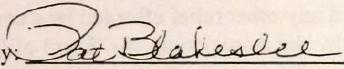 y: Pat Blakeslee